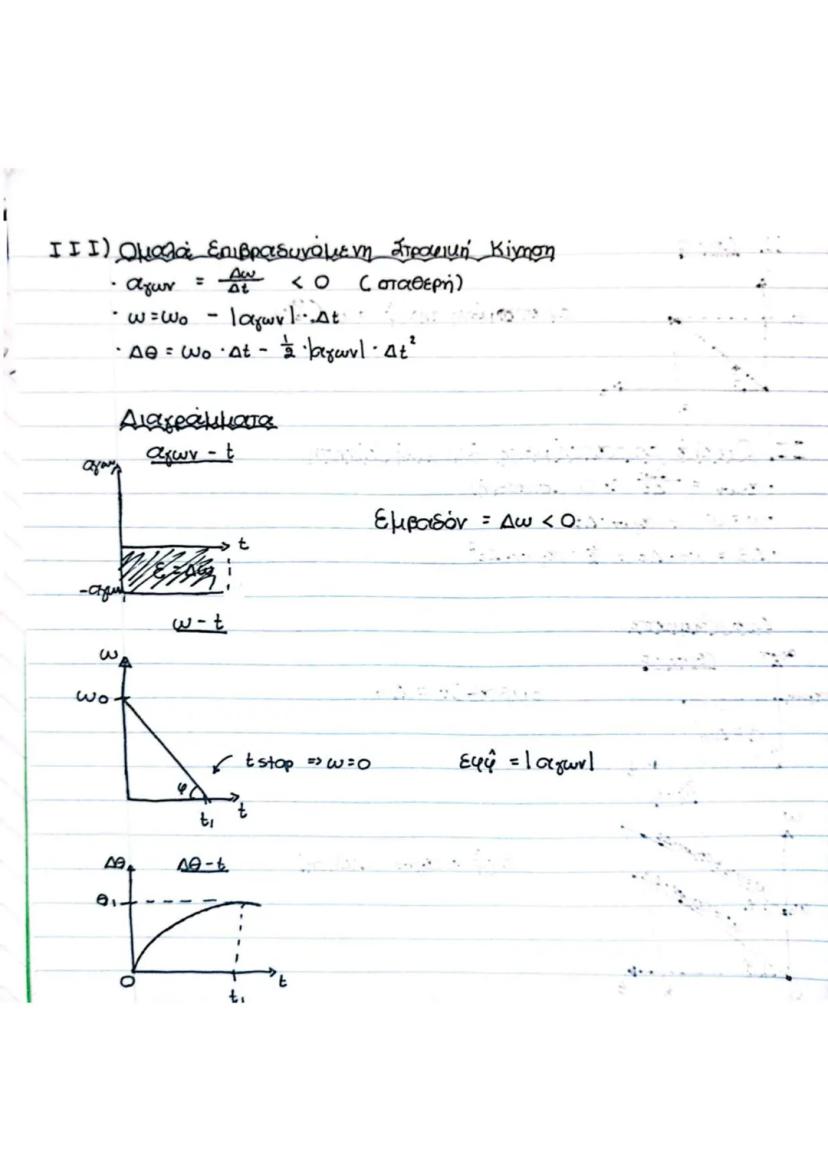 III) Ομαλά Επιβραδυνόμενη Στροφική Κίνηση
· αγων = Δω/Δt < 0 (σταθερή)
· ω = ω₀ - |αγων| · Δt
· Δθ = ω₀ · Δt - 1/2 · |αγων| · Δt²
Διαγράμματα
αγων - t
αγων
t
Ε = Δω
-αγων
Εμβαδόν = Δω < 0
ω - t
ω
ω₀
φ
t₁
t
t stop => ω = 0
εφφ̂ = |αγων|
Δθ
Δθ - t
θ₁
0
t₁
t